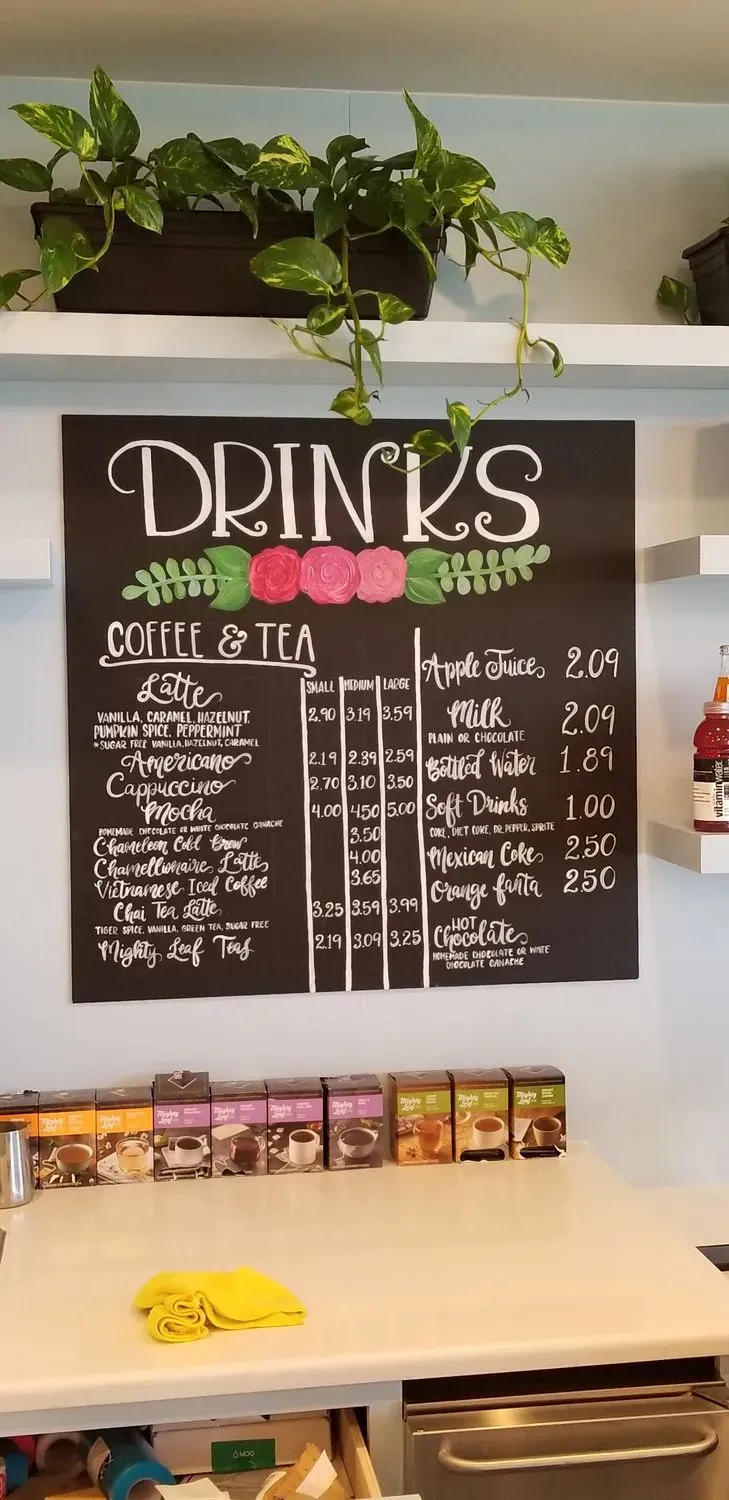 DRINKS
COFFEE & TEA
SMALL MEDIUM LARGE
Latte 2.90 3.19 3.59
VANILLA, CARAMEL, HAZELNUT,
PUMPKIN SPICE, PEPPERMINT
*SUGAR FREE VANILLA, HAZELNUT, CARAMEL
Americano 2.19 2.39 2.59
Cappuccino 2.70 3.10 3.50
Mocha 4.00 4.50 5.00
HOMEMADE CHOCOLATE OR WHITE CHOCOLATE GANACHE
Chameleon Cold Brew 3.50
Chamellionaire Latte 4.00
Vietnamese Iced Coffee 3.65
Chai Tea Latte 3.25 3.59 3.99
TIGER SPICE, VANILLA, GREEN TEA, SUGAR FREE
Mighty Leaf Teas 2.19 3.09 3.25
Apple Juice 2.09
Milk 2.09
PLAIN OR CHOCOLATE
Bottled Water 1.89
Soft Drinks 1.00
COKE, DIET COKE, DR. PEPPER, SPRITE
Mexican Coke 2.50
Orange fanta 2.50
HOT
Chocolate
HOMEMADE CHOCOLATE OR WHITE
CHOCOLATE GANACHE
vitaminwater
Mighty Leaf
Mighty Leaf
Mighty Leaf
Mighty Leaf
Mighty Leaf
Mighty Leaf
Mighty Leaf
Mighty Leaf
Mighty Leaf
MOO